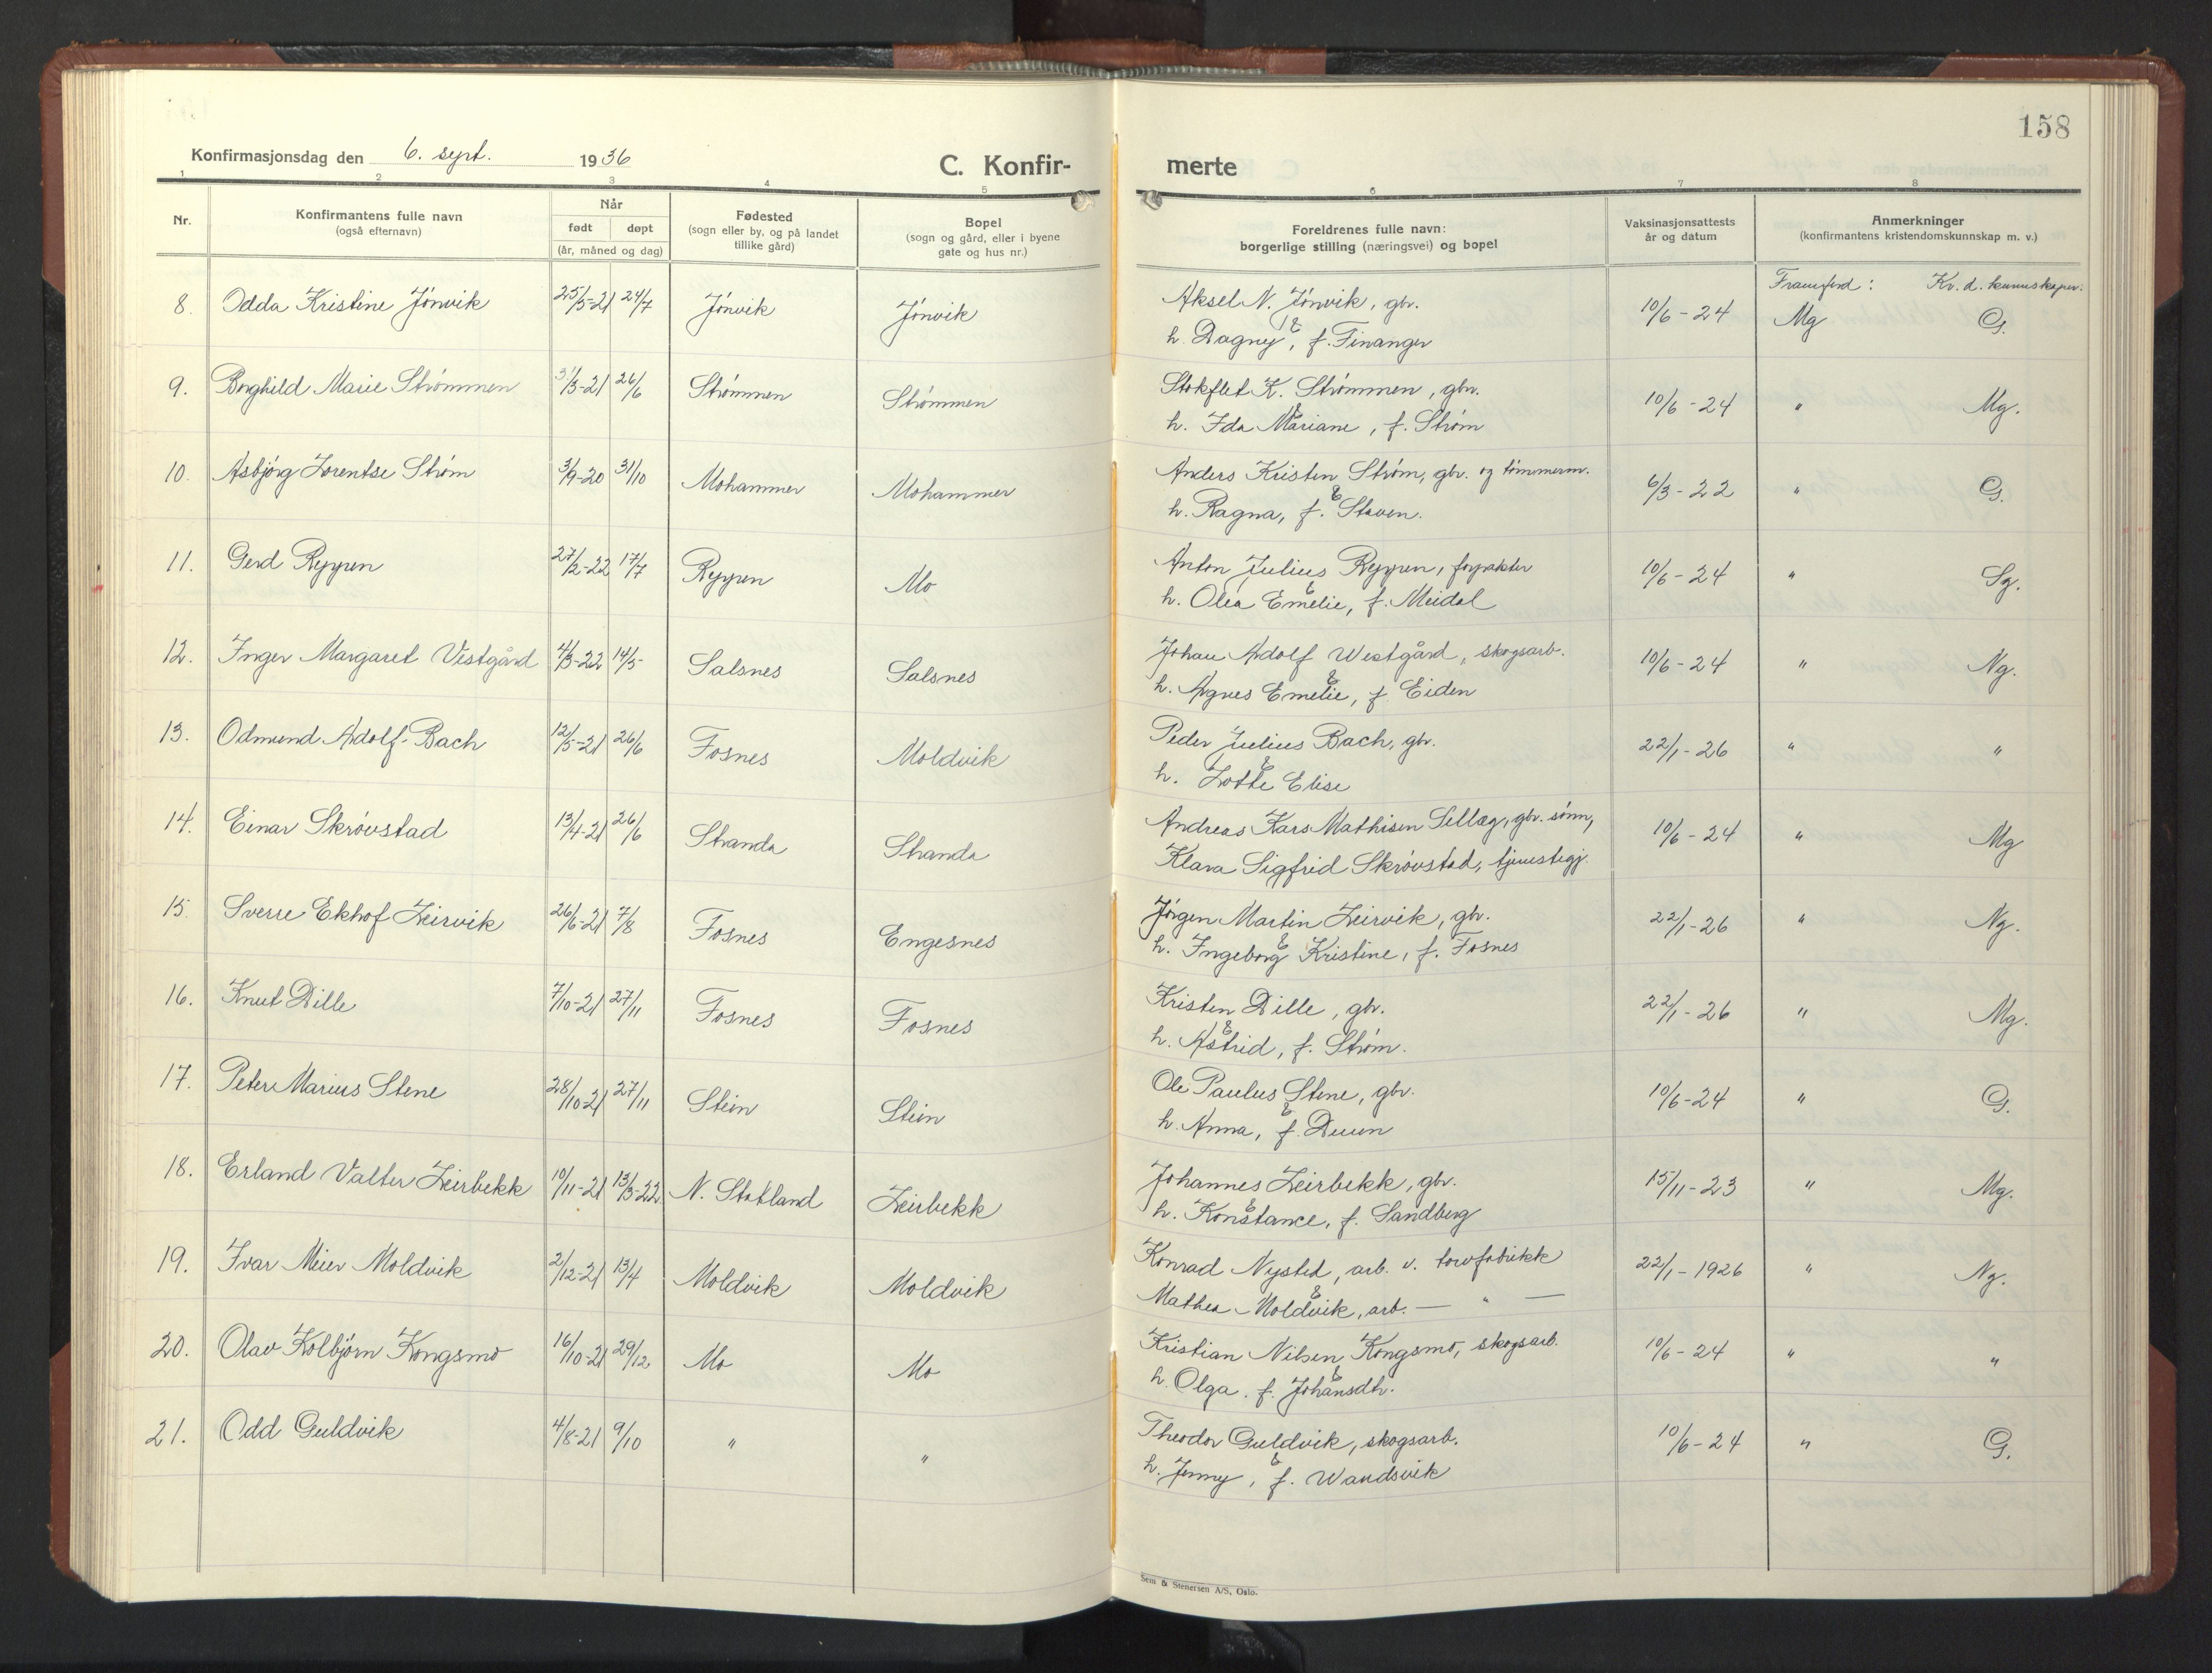 158
Konfirmasjonsdag den 6. sept. 1936
C. Konfir- merte
1 2 3 4 5 6 7 8
Nr.
Konfirmantens fulle navn
(også efternavn)
Når
født døpt
(år, måned og dag)
Fødested
(sogn eller by, og på landet
tillike gård)
Bopel
(sogn og gård, eller i byene
gate og hus nr.)
Foreldrenes fulle navn:
borgerlige stilling (næringsvei) og bopel
Vaksinasjonsattests
år og datum
Anmerkninger
(konfirmantens kristendomskunnskap m. v.)
Framferd: Kr. d. kunnskaper:
8. Odda Kristine Jönvik 25/5-21 24/7 Jönvik Jönvik Aksel N. Jönvik, gbr. 10/6-24 Mg G.
& h. Dagny, f. Finanger
9. Borghild Marie Strömmen 31/3-21 26/6 Strömmen Strömmen Stokflet K. Strömmen, gbr. 10/6-24 " Mg.
& h. Ida Mariane, f. Ström
10. Asbjörg Lorentse Ström 3/9-20 31/10 Mohammer Mohammer Anders Kristen Ström, gbr. og tömmerm. 6/3-22 " G.
& h. Ragna, f. Staven.
11. Gerd Reppen 27/2-22 17/7 Reppen Mo Anton Julius Reppen, forpakter 10/6-24 " Sg.
& h. Olea Emelie, f. Meidal
12. Inger Margaret Vestgård 4/3-22 14/5- Salsnes Salsnes Johan Adolf Westgård, skogsarb. 10/6-24 " Ng.
& h. Agnes Emelie, f. Eiden
13. Odmund Adolf Bach 12/5-21 26/6 Fosnes Moldvik Peder Julius Bach, gbr. 22/1-26 " "
& h. Lotte Elise
14. Einar Skrövstad 13/4-21 26/6 Stranda Stranda Andreas Lars Mathisen Sellæg, gbr. sönn, 10/6-24 " Mg
Klara Sigfrid Skrövstad, tjenestegj.
15 Sverre Ekhof Leirvik 26/6-21 7/8 Fosnes Engesnes Jörgen Martin Leirvik, gbr. 22/1-26 " Ng.
& h. Ingeborg Kristine, f. Fosnes
16. Knut Dille 7/10-21 27/11 Fosnes Fosnes Kristen Dille, gbr. 22/1-26 " Mg.
& h. Astrid, f. Ström.
17. Peter Marius Stene 28/10-21 27/11 Stein Stein Ole Paulus Stene, gbr. 10/6-24 " G.
& h. Anna, f. Duun
18. Erland Valter Leirbekk 10/11-21 13/3-22. N. Statland Leirbekk Johannes Leirbekk, gbr. 15/11-23 " Mg.
& h. Konstance, f. Sandberg
19. Ivar Meier Moldvik 2/12-21 13/4 Moldvik Moldvik Konrad Nysted, arb. v. torvfabrikk 22/1-1926 " Ng.
& Mathea Moldvik, arb. — " —
20. Olav Kolbjörn Kongsmo 16/10-21 29/12 Mo Mo Kristian Nilsen Kongsmo, skogsarb. 10/6-24 " "
& h. Olga. f. Johansdtr.
21. Odd Guldvik 4/8-21 9/10 " " Theodor Guldvik, skogsarb. 10/6-24 " G.
& h. Jenny, f. Wandsvik
Sem & Stenersen A/S, Oslo.